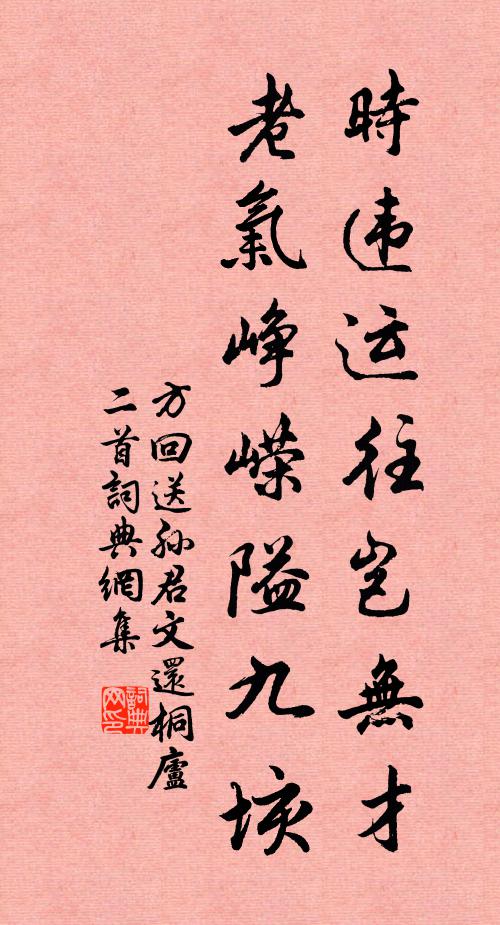 時违运往岂無才
老氣峥嶸隘九垓
方回送孫君文還桐廬
二首詞典網集
詞典网印